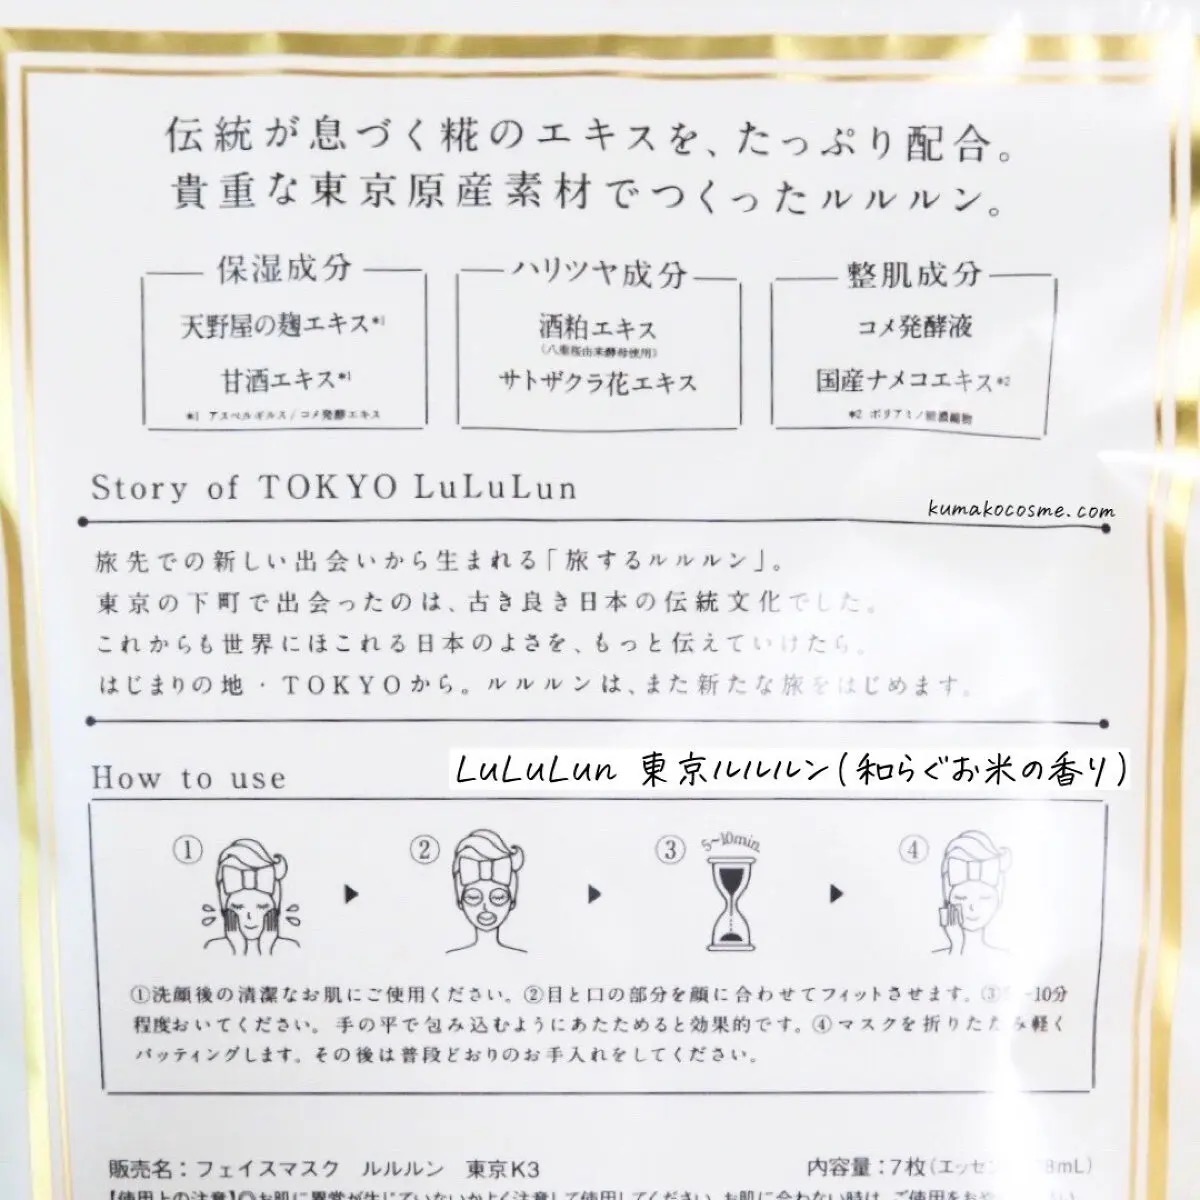 伝統が息づく糀のエキスを、たっぷり配合。
貴重な東京原産素材でつくったルルルン。
保湿成分
天野屋の麹エキス*1
甘酒エキス*1
*1 アスペルギルス/コメ発酵エキス
ハリツヤ成分
酒粕エキス
(八重桜由来酵母使用)
サトザクラ花エキス
整肌成分
コメ発酵液
国産ナメコエキス*2
*2 ポリアミノ
Story of TOKYO LuLuLun
kumakocosme.com
旅先での新しい出会いから生まれる「旅するルルルン」。
東京の下町で出会ったのは、古き良き日本の伝統文化でした。
これからも世界にほこれる日本のよさを、もっと伝えていけたら。
はじまりの地・TOKYOから。ルルルンは、また新たな旅をはじめます。
How to use
LuLuLun 東京ルルルン(和らぐお米の香り)
① ② ③ 5~10min. ④
①洗顔後の清潔なお肌にご使用ください。②目と口の部分を顔に合わせてフィットさせます。③ -10分
程度おいてください。手の平で包み込むようにあたためると効果的です。④マスクを折りたたみ軽く
パッティングします。その後は普段どおりのお手入れをしてください。
販売名：フェイスマスク ルルルン 東京K3
内容量：7枚(エッセン 8mL)
【使用上の注意】○お肌に異常が生じていないかよく注意して使用してください。お肌に合わない時は、ご使用をおや